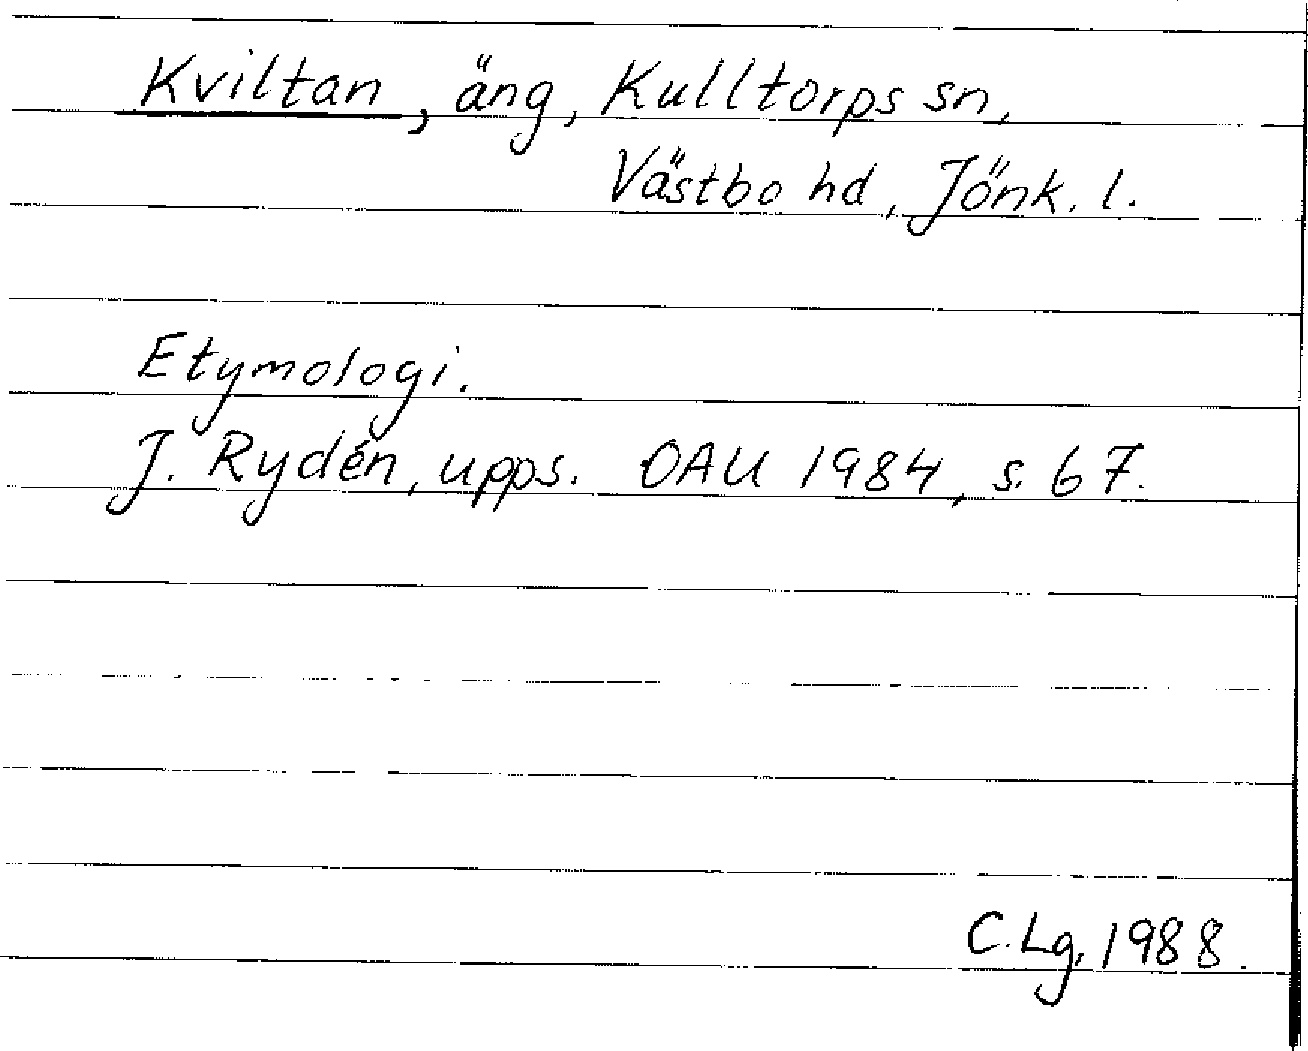 Kviltan, äng, Kulltorps sn,
Västbo hd, Jönk. l.
Etymologi.
J. Rydén, upps. OAU 1984, s. 67.
C. Lg, 1988.